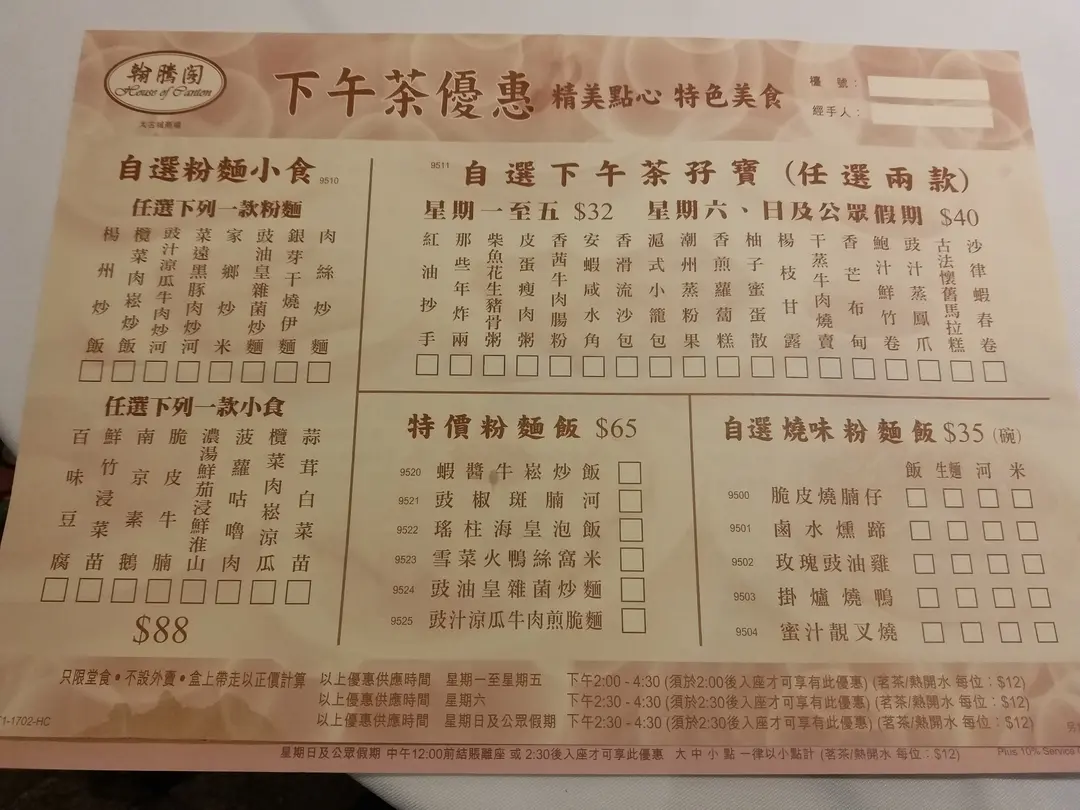 翰騰閣
House of Canton
太古城商場
下午茶優惠 精美點心 特色美食
檯 號：
經手人：
自選粉麵小食 9510
任選下列一款粉麵
楊州炒飯
欖菜肉崧炒飯
豉汁涼瓜牛肉炒河
菜遠黑豚肉炒河
家鄉炒米
豉油皇雜菌炒麵
銀芽干燒伊麵
肉絲炒麵
任選下列一款小食
百味豆腐
鮮竹浸菜苗
南京素鵝
脆皮牛腩
濃湯鮮茄浸鮮淮山
菠蘿咕嚕肉
欖菜肉崧涼瓜
蒜茸白菜苗
$88
9511 自選下午茶孖寶 (任選兩款)
星期一至五 $32 星期六、日及公眾假期 $40
紅油抄手
那些年炸兩
柴魚花生豬骨粥
皮蛋瘦肉粥
香茜牛肉腸粉
安蝦咸水角
香滑流沙包
滬式小籠包
潮州蒸粉果
香煎蘿蔔糕
柚子蜜蛋散
楊枝甘露
干蒸牛肉燒賣
香芒布甸
鮑汁鮮竹卷
豉汁蒸鳳爪
古法懷舊馬拉糕
沙律蝦春卷
特價粉麵飯 $65
9520 蝦醬牛崧炒飯
9521 豉椒斑腩河
9522 瑤柱海皇泡飯
9523 雪菜火鴨絲窩米
9524 豉油皇雜菌炒麵
9525 豉汁涼瓜牛肉煎脆麵
自選燒味粉麵飯 $35 (碗)
飯 生麵 河 米
9500 脆皮燒腩仔
9501 鹵水燻蹄
9502 玫瑰豉油雞
9503 掛爐燒鴨
9504 蜜汁靚叉燒
只限堂食•不設外賣•盒上帶走以正價計算
以上優惠供應時間 星期一至星期五 下午2:00 - 4:30 (須於2:00後入座才可享有此優惠) (茗茶/熱開水 每位：$12)
以上優惠供應時間 星期六 下午2:30 - 4:30 (須於2:30後入座才可享有此優惠) (茗茶/熱開水 每位：$12)
以上優惠供應時間 星期日及公眾假期 下午2:30 - 4:30 (須於2:30後入座才可享有此優惠) (茗茶/熱開水 每位：$12)
1-1702-HC
星期日及公眾假期 中午12:00前結賬離座 或 2:30後入座才可享此優惠 大中小點一律以小點計 (茗茶/熱開水 每位：$12)
Plus 10% Service